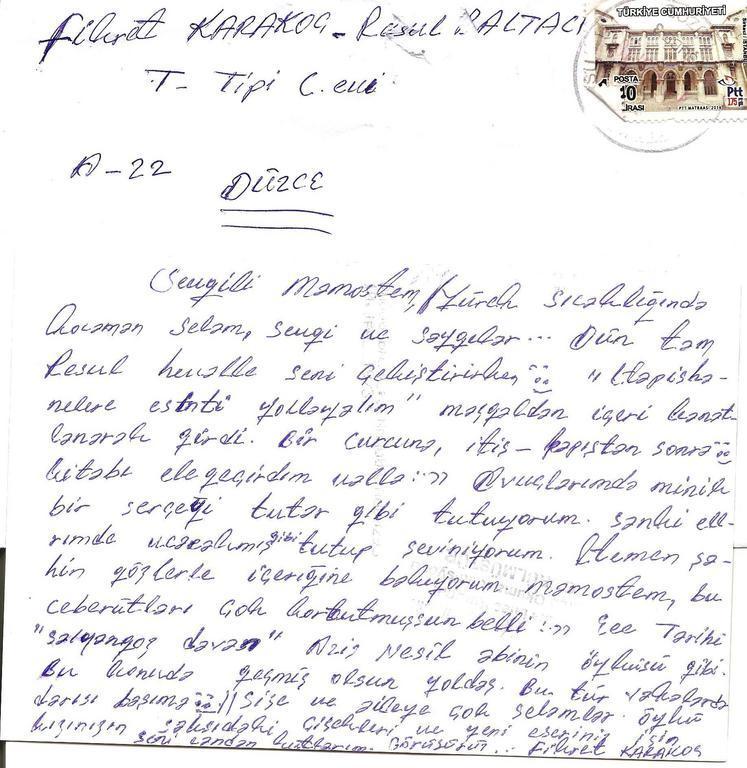 Fikret KARAKOÇ - Resul BALTACI
T - Tipi C. evi
A - 22
DÜZCE
TÜRKİYE CUMHURİYETİ
POSTA
10
LİRASI
Ptt
PTT MATBAASI
Sevgili Mamostem, Yürek sıcaklığında
kocaman selam, sevgi ve saygılar... Dün tam
Resul hevalle seni çekiştirirken "Hapisha-
nelere esinti yollayalım" mazgaldan içeri kanat-
lanarak girdi. Bir curcuna, itiş - kapıştan sonra
kitabı ele geçirdim valla :)) Avuçlarımda minik
bir serçeyi tutar gibi tutuyorum. Sanki elle-
rimde uçacakmış gibi tutup seviniyorum. Hemen şa-
hin gözlerle içeriğine bakıyorum mamostem, bu
ceberütları çok korkutmuşsun belli :)) Ece Tarihi
"salyangoz davası" Aziz Nesin abinin öyküsü gibi.
Bu konuda geçmiş olsun yoldaş. Bu tür vakalarda
darısı başıma )) Size ve aileye çok selamlar. Öykü
kışınızın saksıdaki çiçekleri ve yeni eseriniz için
seni candan kutlarım. Görüşürüz... Fikret KARAKOÇ